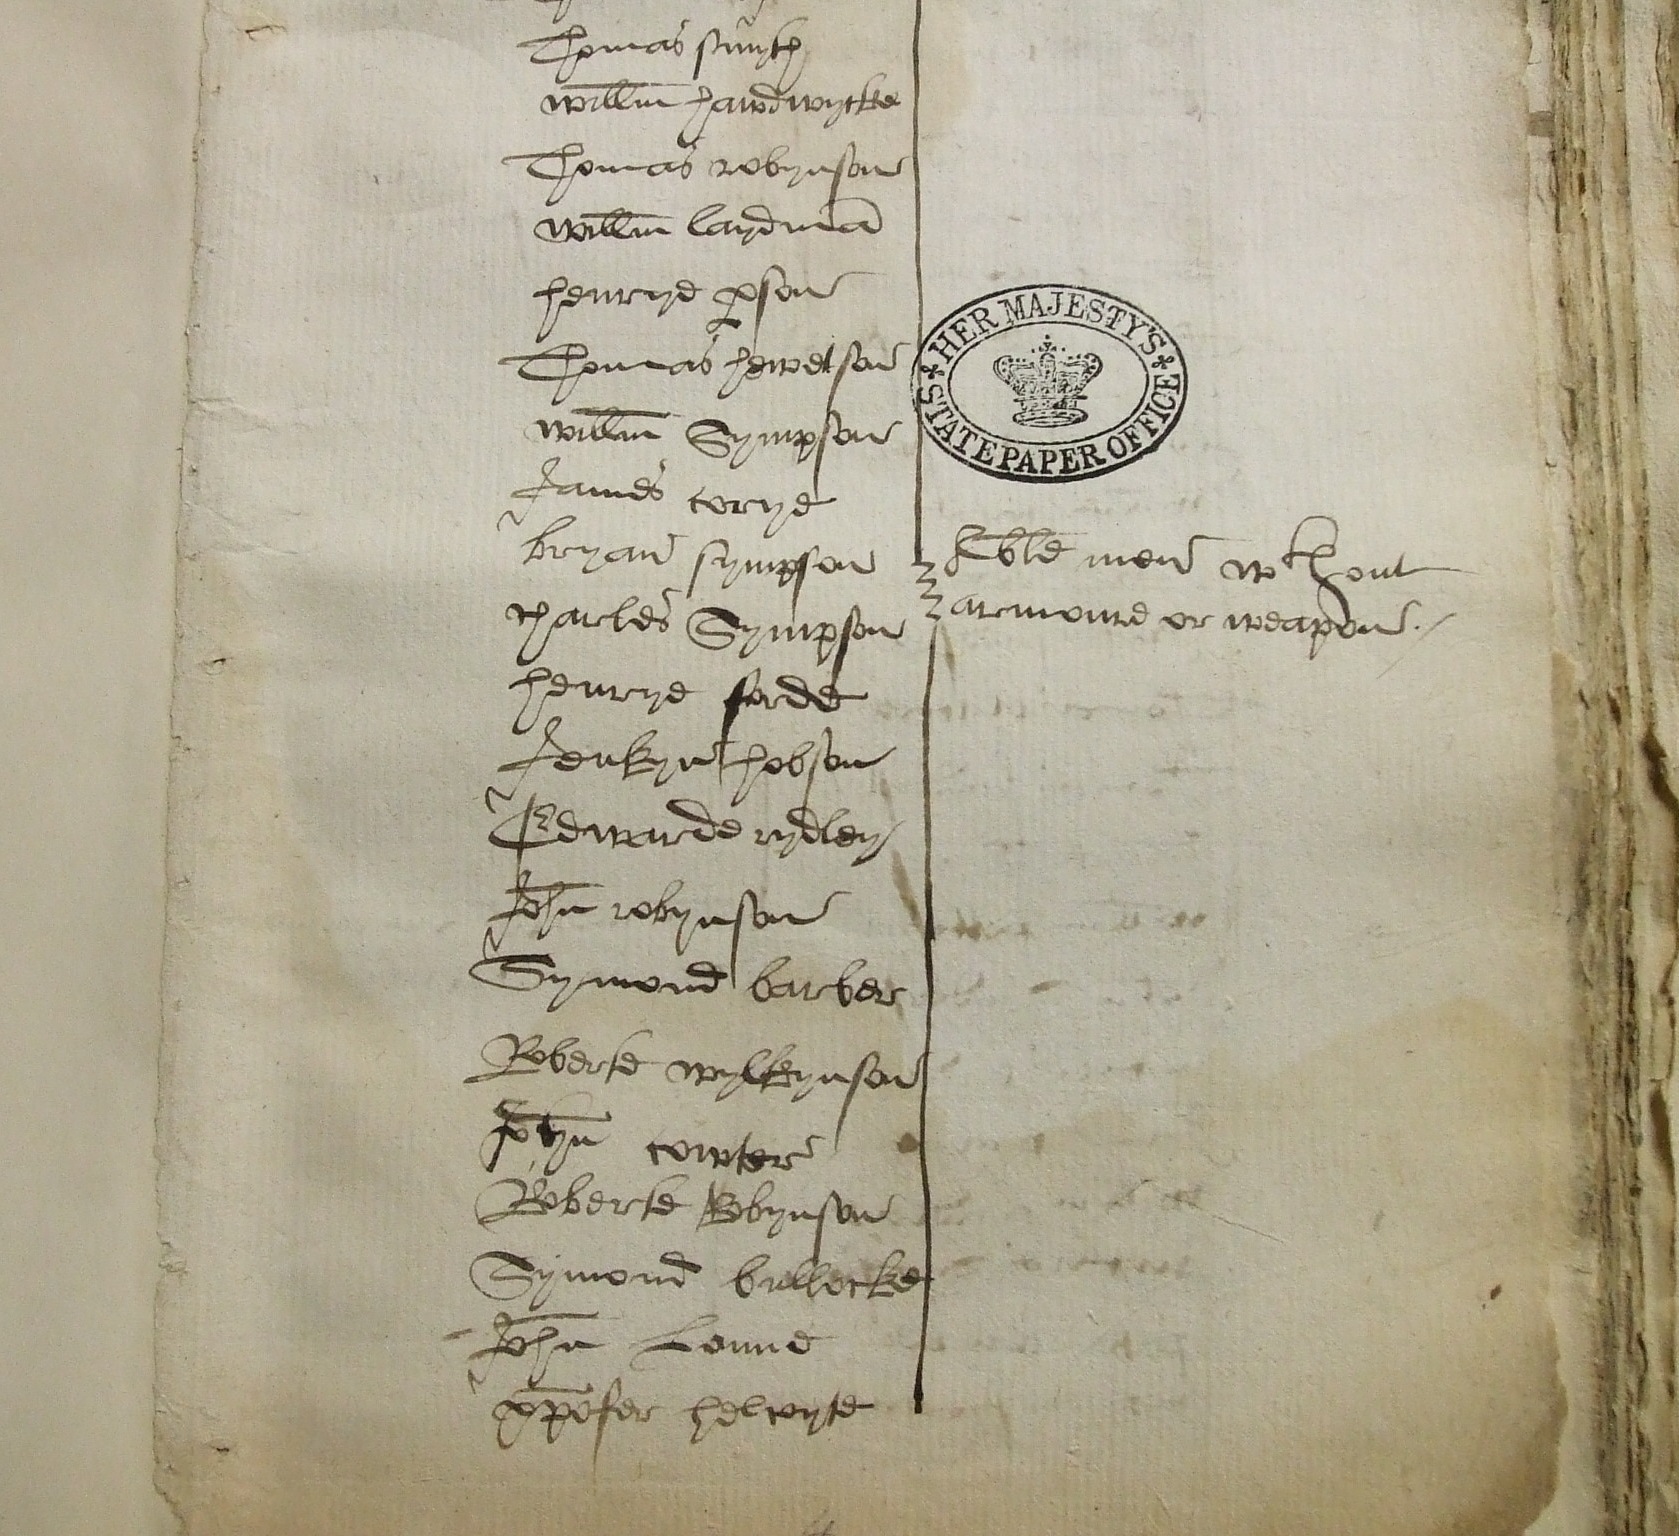 Thomas smyth
willm hardwycke
Thomas robynson
willm laydmā
henrye pson
Thomas hewetson
willm Sympson
James corye
bryan sympson
charles Sympson
henrye forde
Jenkyn hobson
Edwarde rydley
John robynson
Symond barber
Roberte wylkynson
John cowter
Roberte Robynson
Symond bullocke
John Lonne
xpofer helwyte
HER MAJESTY'S
STATE PAPER OFFICE
Able men wthout
armoure or weapon